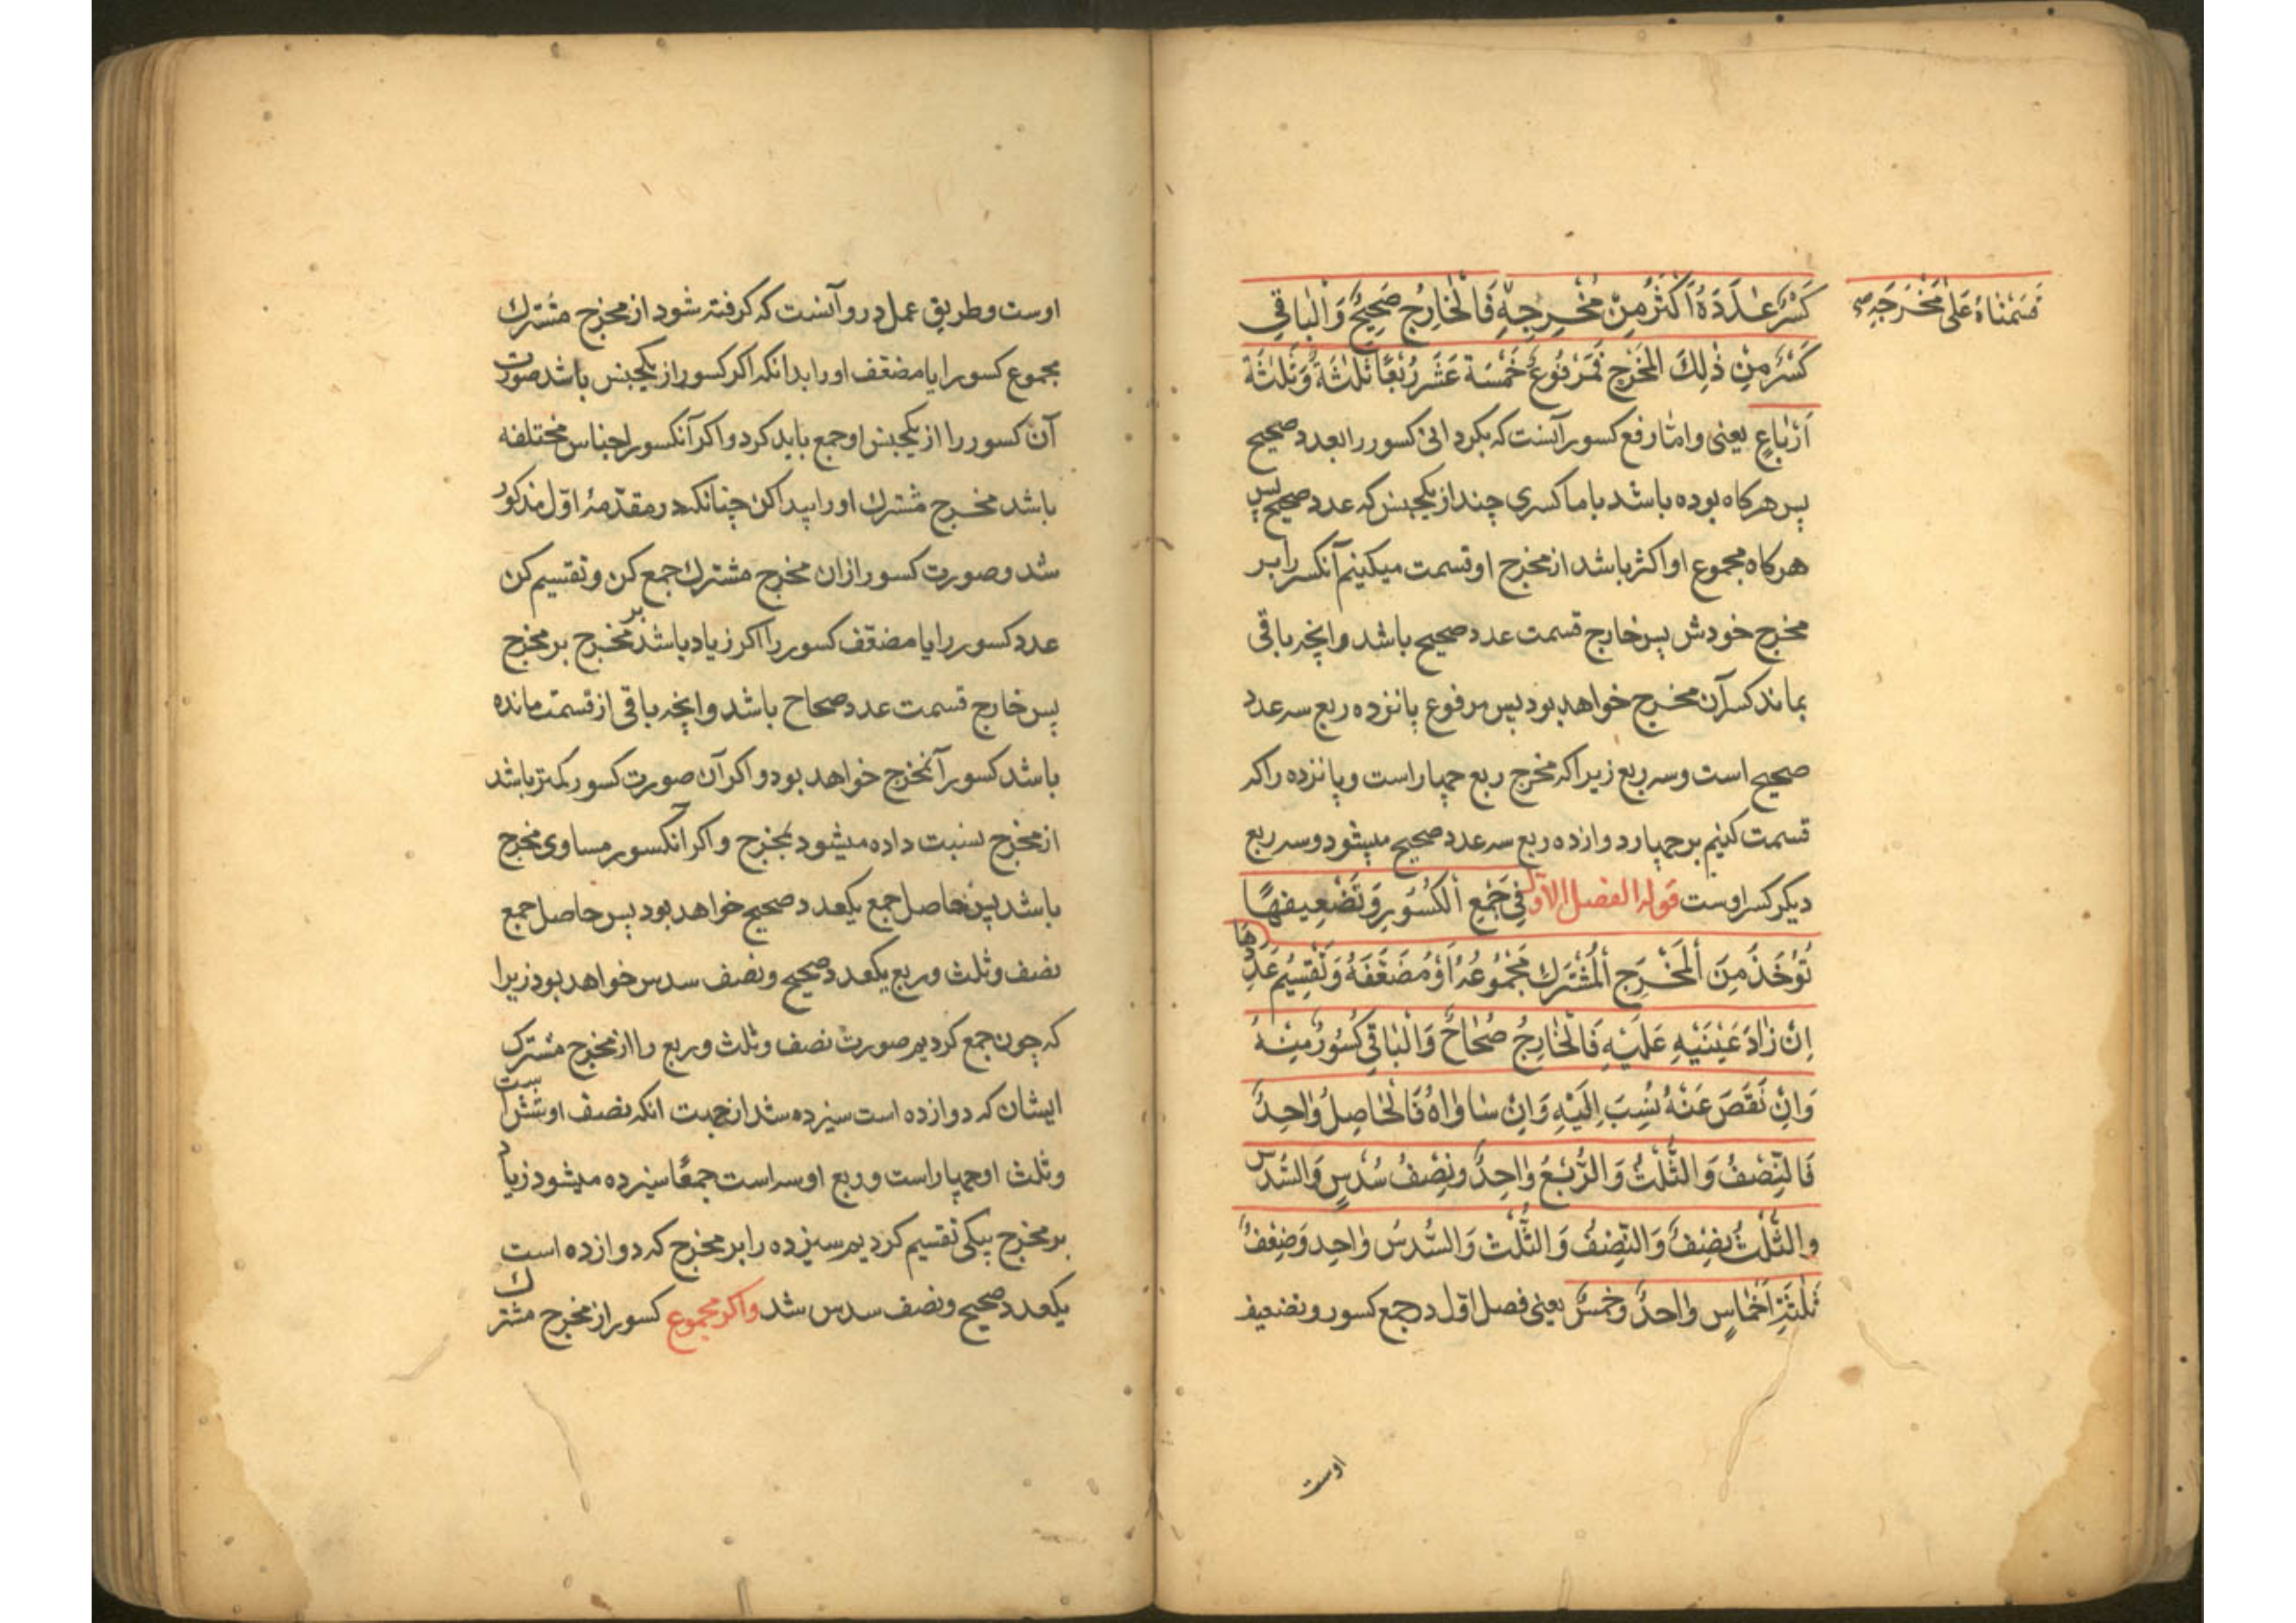 كَسْرٌ عَدَدَهُ اَكْثَرُ مِنْ مَخْرِجِهِ فَالْخَارِجُ صَحِيحٌ وَالْبَاقِي
قَسَمْنَاهُ عَلَىٰ مَخْرَجِهِ صح
كَسْرٌ مِنْ ذٰلِكَ الْمَخْرَجِ فَمَرْفُوعُ خَمْسَةَ عَشَرَ رُبْعًا ثَلٰثَةٌ وَثَلٰثَةُ
اَرْبَاعٍ یعنی واما رفع کسور آنست که بکردانی کسور را بعدد صحیح
پس هرکاه بوده باشد با ما کسری چند از یکجنس که عدد صحیح پس
هرکاه مجموع او اکثر باشد از مخرج او قسمت میکنیم آنکسر را بر
مخرج خودش پس خارج قسمت عدد صحیح باشد وانچه باقی
بماند کسر آن مخرج خواهد بود پس مرفوع پانزده ربع سه عدد
صحیح است وسه ربع زیرا که مخرج ربع چهار است وپانزده را که
قسمت کنیم بر چهار دوازده ربع سه عدد صحیح میشود وسه ربع
دیکر کسر اوست قوله الفصل الاول فِي جَمْعِ الْكُسُورِ وَتَضْعِيفِهَا
تُؤْخَذُ مِنَ الْمَخْرَجِ الْمُشْتَرَكِ مَجْمُوعُهُ اَوْ مُضَعَّفَهُ وَتُقْسِيمُ عَدَدُهَا
اِنْ زَادَ عَيْنَيْهِ عَلَيْهِ فَالْخَارِجُ صِحَاحٌ وَالْبَاقِي كُسُورٌ مِنْهُ
وَاِنْ نَقَصَ عَنْهُ نُسِبَ اِلَيْهِ وَاِنْ سَاوَاهُ فَالْحَاصِلُ وَاحِدٌ
فَالنِّصْفُ وَالثُّلْثُ وَالرُّبْعُ وَاحِدٌ وَنِصْفُ سُدْسٍ وَالسُّدْسُ
وَالثُّلْثُ نِصْفٌ وَالنِّصْفُ وَالثُّلْثُ وَالسُّدْسُ وَاحِد وَضِعْفُ
ثَلٰثَةِ اَخْمَاسٍ وَاحِدٌ وَخُمْسٌ یعنی فصل اول در جمع کسور وتضعیف
اوست
اوست وطریق عمل در و آنست که کرفته شود از مخرج مشترك
مجموع کسور را یا مضعّف او را بدانکه اکر کسور از یکجنس باشد صورت
آن کسور را از یکجنس او جمع باید کرد واکر آنکسور اجناس مختلفه
باشد مخرج مشترك او را پیدا کن چنانکه در مقدمهٔ اوّل مذکور
شد وصورت کسور از ان مخرج مشترك جمع کن وتقسیم کن
عدد کسور را یا مضعّف کسور را اکر زیاد باشد بر مخرج بر مخرج
پس خارج قسمت عدد صحاح باشد وانچه باقی از قسمت مانده
باشد کسور آنمخرج خواهد بود و اکر آن صورت کسور کمتر باشد
از مخرج نسبت داده میشود بمخرج و اکر آنکسور مساوی مخرج
باشد پس حاصل جمع یکعدد صحیح خواهد بود پس حاصل جمع
نصف وثلث وربع یکعدد صحیح ونصف سدس خواهد بود زیرا
که چون جمع کردیم صورت نصف وثلث وربع را از مخرج مشترك
ایشان که دوازده است سیزده شد از جهت انکه نصف او شش است
وثلث او چهار است وربع او سه است جمعًا سیزده میشود زیاد
بر مخرج بیکی تقسیم کردیم سیزده را بر مخرج که دوازده است
یکعدد صحیح ونصف سدس شد واکر مجموع کسور از مخرج مشترك